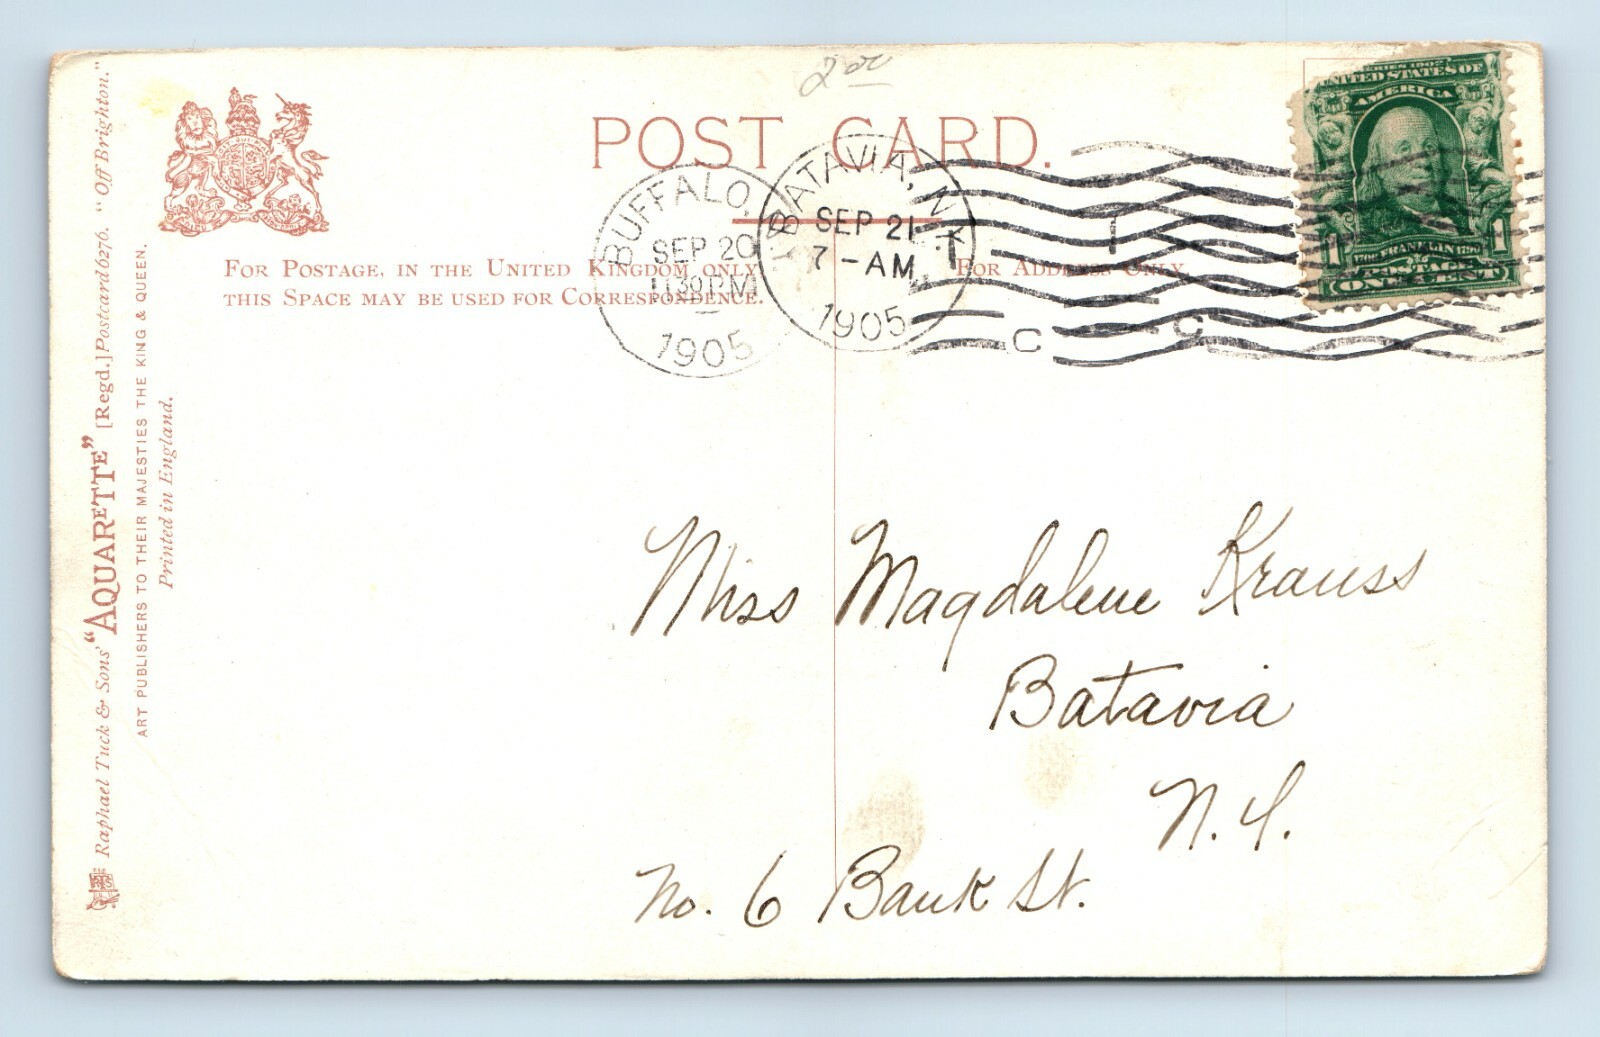 2 00
POST CARD.
FOR POSTAGE, IN THE UNITED KINGDOM ONLY
THIS SPACE MAY BE USED FOR CORRESPONDENCE.
FOR ADDRESS ONLY
BUFFALO,
SEP 20
1130 PM
1905
BATAVIA, N.Y.
SEP 21
7-AM
1905
1
C C
SERIES 1902
UNITED STATES OF
AMERICA
1 FRANKLIN 1
POSTAGE
ONE CENT
Raphael Tuck & Sons' "AQUARETTE" [Regd.] Postcard 6276. "Off Brighton."
ART PUBLISHERS TO THEIR MAJESTIES THE KING & QUEEN.
Printed in England.
Miss Magdalene Krauss
Batavia
N. Y.
No. 6 Bank St.